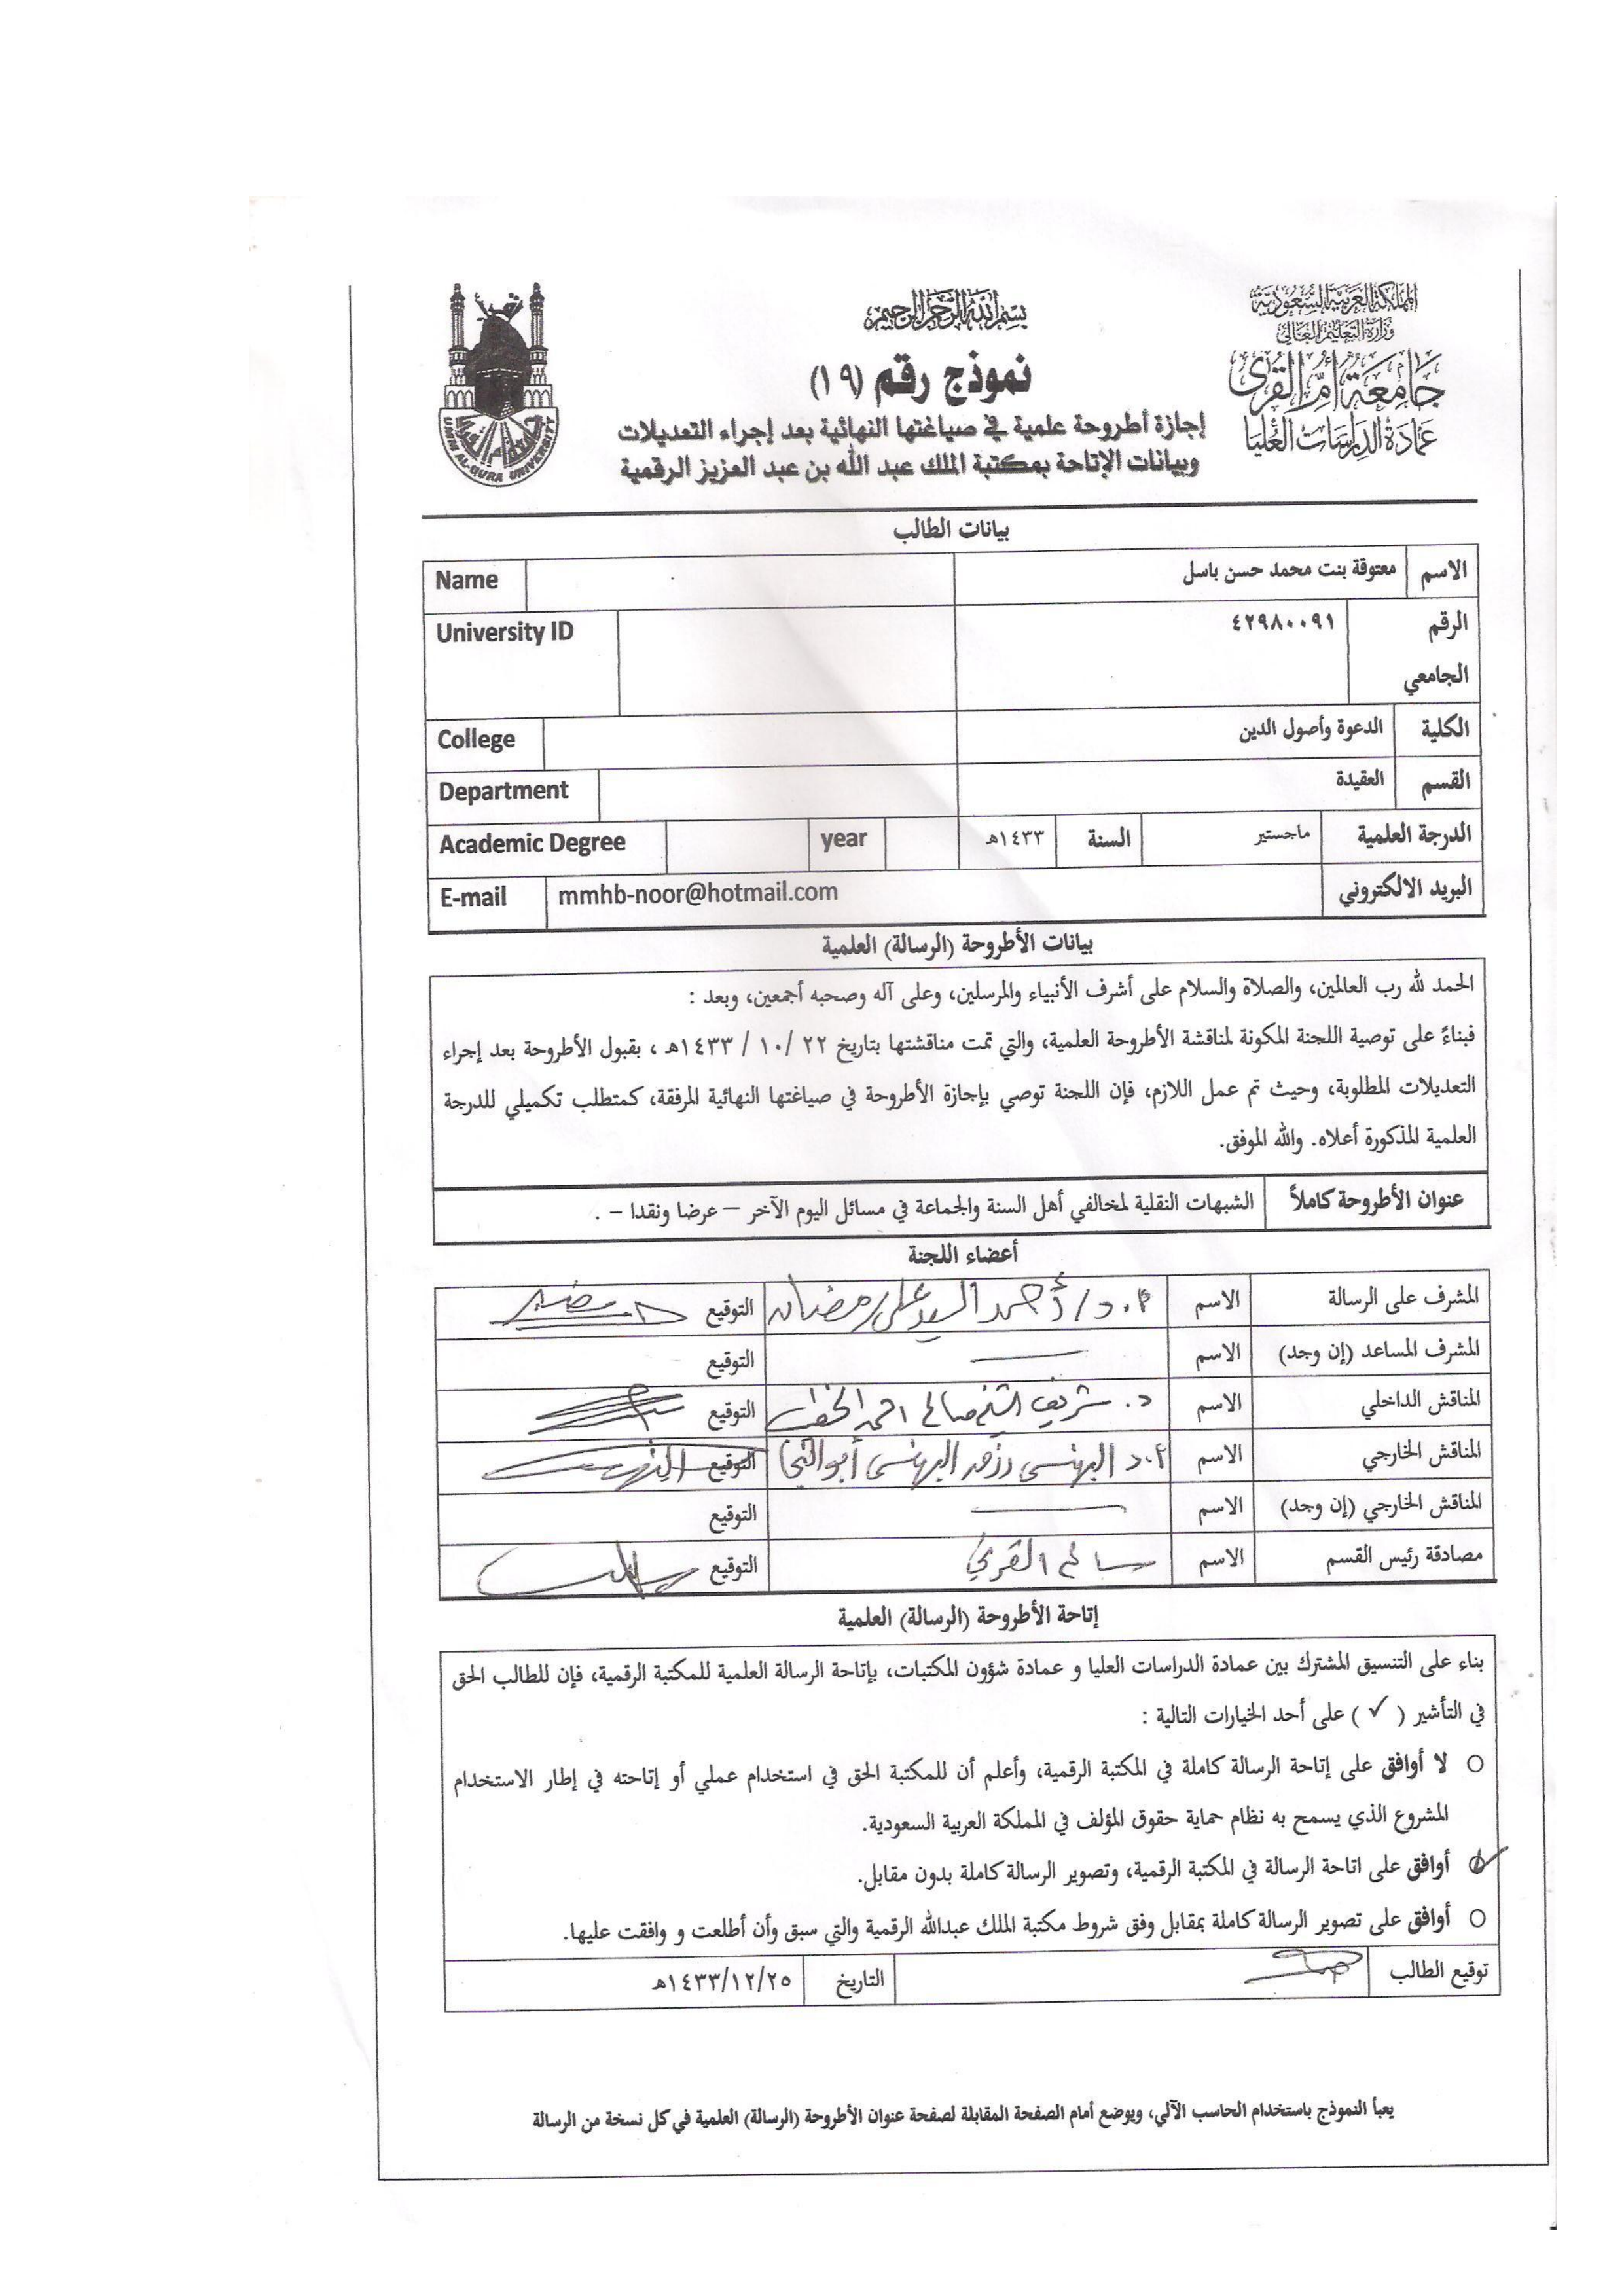 المملكة العربية السعودية
وزارة التعليم العالي
جامعة أم القرى
عمادة الدراسات العليا
بسم الله الرحمن الرحيم
نموذج رقم (١٩)
إجازة أطروحة علمية في صياغتها النهائية بعد إجراء التعديلات
وبيانات الإتاحة بمكتبة الملك عبد الله بن عبد العزيز الرقمية
UMM AL-QURA UNIVERSITY
بيانات الطالب
الاسم معتوقة بنت محمد حسن باسل Name
الرقم الجامعي ٤٢٩٨٠٠٩١ University ID
الكلية الدعوة وأصول الدين College
القسم العقيدة Department
الدرجة العلمية ماجستير السنة ١٤٣٣هـ year Academic Degree
البريد الالكتروني mmhb-noor@hotmail.com E-mail
بيانات الأطروحة (الرسالة) العلمية
الحمد لله رب العالمين، والصلاة والسلام على أشرف الأنبياء والمرسلين، وعلى آله وصحبه أجمعين، وبعد :
فبناءً على توصية اللجنة المكونة لمناقشة الأطروحة العلمية، والتي تمت مناقشتها بتاريخ ٢٢ /١٠ / ١٤٣٣هـ ، بقبول الأطروحة بعد إجراء
التعديلات المطلوبة، وحيث تم عمل اللازم، فإن اللجنة توصي بإجازة الأطروحة في صياغتها النهائية المرفقة، كمتطلب تكميلي للدرجة
العلمية المذكورة أعلاه. والله الموفق.
عنوان الأطروحة كاملاً الشبهات النقلية لمخالفي أهل السنة والجماعة في مسائل اليوم الآخر – عرضا ونقدا – .
أعضاء اللجنة
المشرف على الرسالة الاسم أ.د/ أحمد السيد علي رمضان التوقيع
المشرف المساعد (إن وجد) الاسم التوقيع
المناقش الداخلي الاسم د. شريف الشيخ صالح احمد الخطيب التوقيع
المناقش الخارجي الاسم أ.د البهنسي البهنسي أبو النجا التوقيع
المناقش الخارجي (إن وجد) الاسم التوقيع
مصادقة رئيس القسم الاسم سالم القرني التوقيع
إتاحة الأطروحة (الرسالة) العلمية
بناء على التنسيق المشترك بين عمادة الدراسات العليا و عمادة شؤون المكتبات، بإتاحة الرسالة العلمية للمكتبة الرقمية، فإن للطالب الحق
في التأشير ( ✓ ) على أحد الخيارات التالية :
لا أوافق على إتاحة الرسالة كاملة في المكتبة الرقمية، وأعلم أن للمكتبة الحق في استخدام عملي أو إتاحته في إطار الاستخدام
المشروع الذي يسمح به نظام حماية حقوق المؤلف في المملكة العربية السعودية.
أوافق على اتاحة الرسالة في المكتبة الرقمية، وتصوير الرسالة كاملة بدون مقابل.
أوافق على تصوير الرسالة كاملة بمقابل وفق شروط مكتبة الملك عبدالله الرقمية والتي سبق وأن أطلعت و وافقت عليها.
توقيع الطالب التاريخ ١٤٣٣/١٢/٢٥هـ
يعبأ النموذج باستخدام الحاسب الآلي، ويوضع أمام الصفحة المقابلة لصفحة عنوان الأطروحة (الرسالة) العلمية في كل نسخة من الرسالة